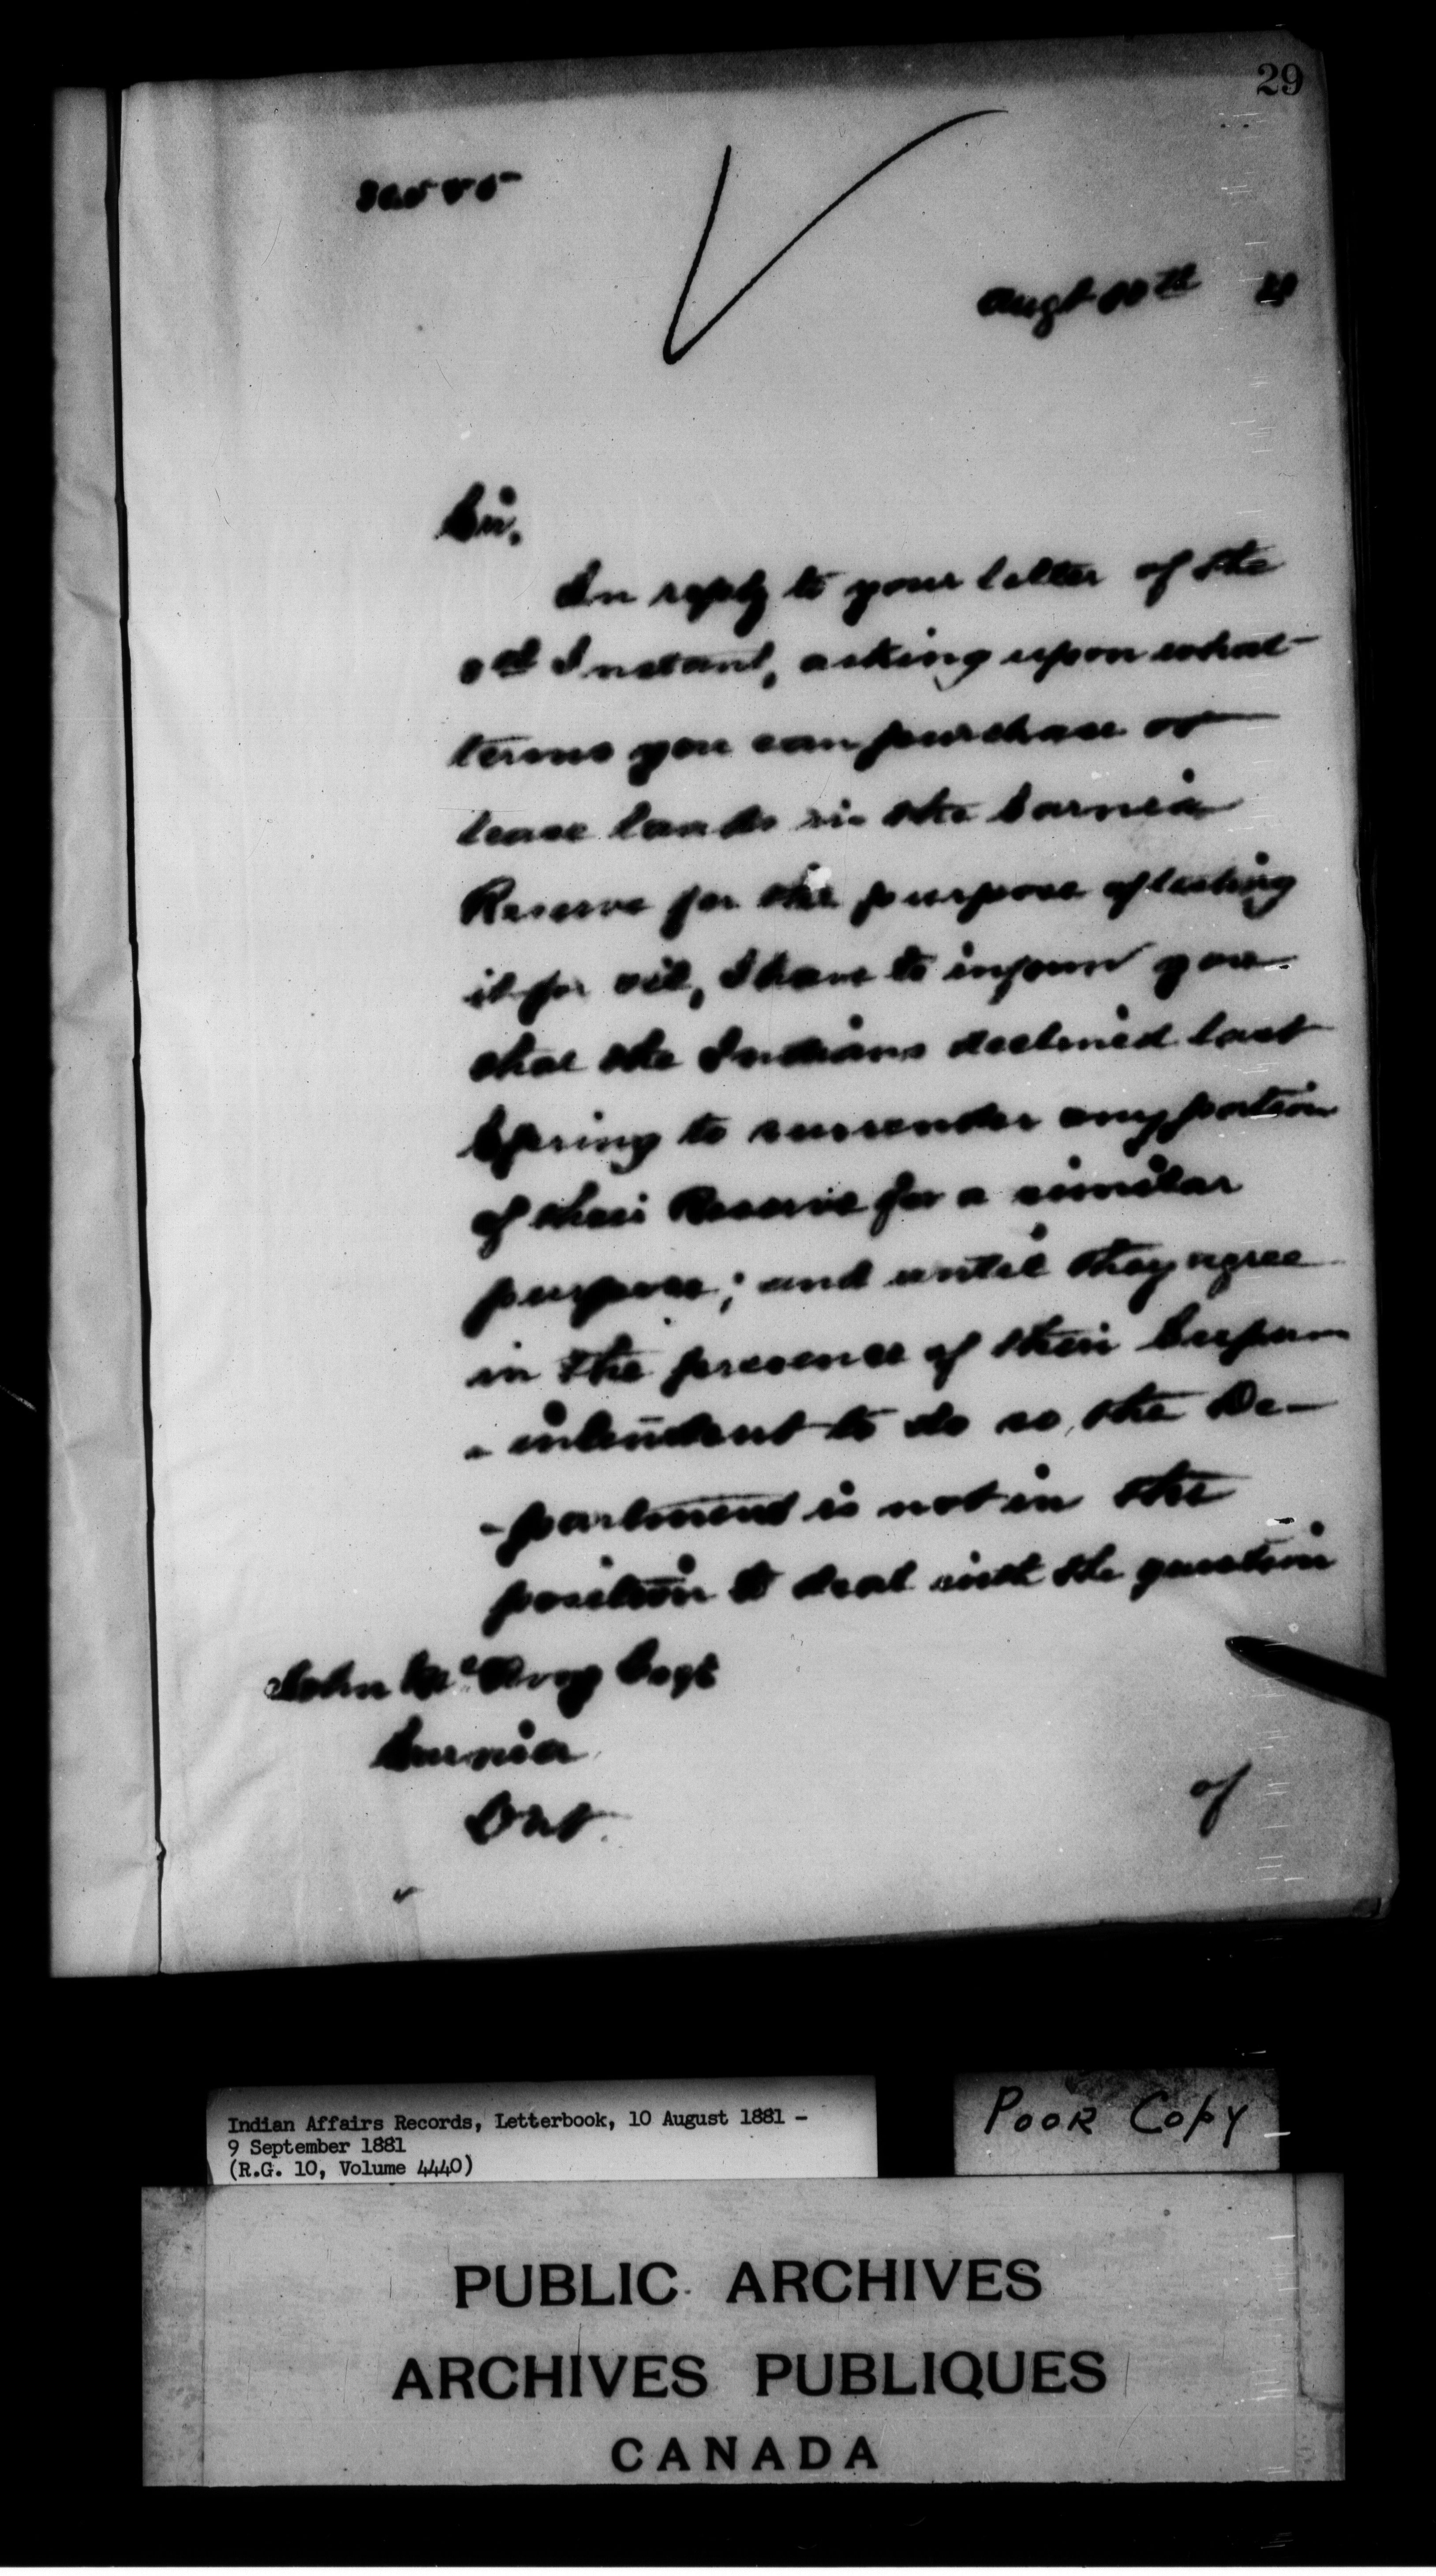 29
Augt 10th 81
Sir,
In reply to your letter of the
Instant, asking upon what
terms you can purchase or
lease lands in the Sarnia
Reserve for the purpose of testing
it for oil, I have to inform you
that the Indians declined last
Spring to surrender any portion
of their Reserve for a similar
purpose; and until they agree
in the presence of their Superin
-intendent to do so, the De-
-partment is not in the
position to deal with the question
John Esqr
Sarnia
Ont.
of
Indian Affairs Records, Letterbook, 10 August 1881 -
9 September 1881
(R.G. 10, Volume 4440)
Poor Copy
PUBLIC ARCHIVES
ARCHIVES PUBLIQUES
CANADA